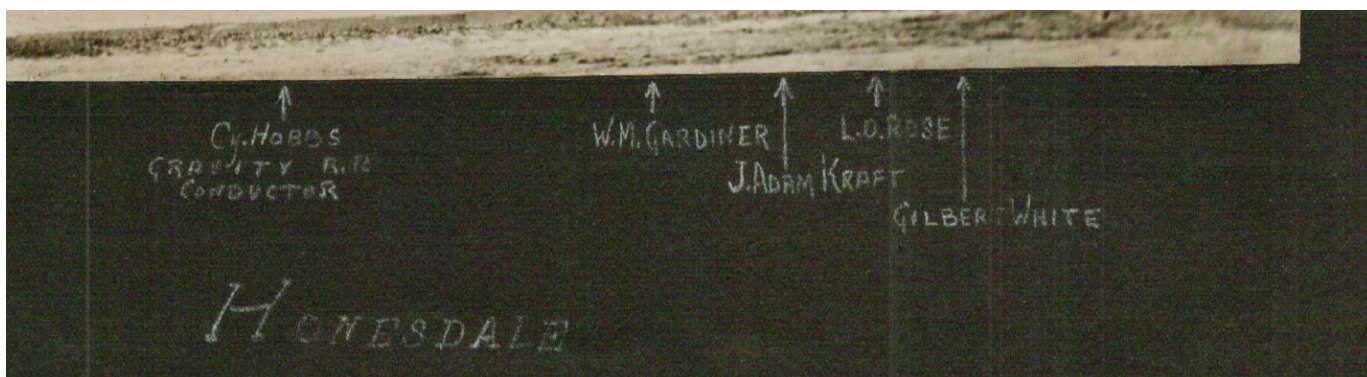 Cy. HOBBS
GRAVITY R.R.
CONDUCTOR
W.M. GARDINER
J. ADAM KRAFT
L.O. ROSE
GILBERT WHITE
HONESDALE